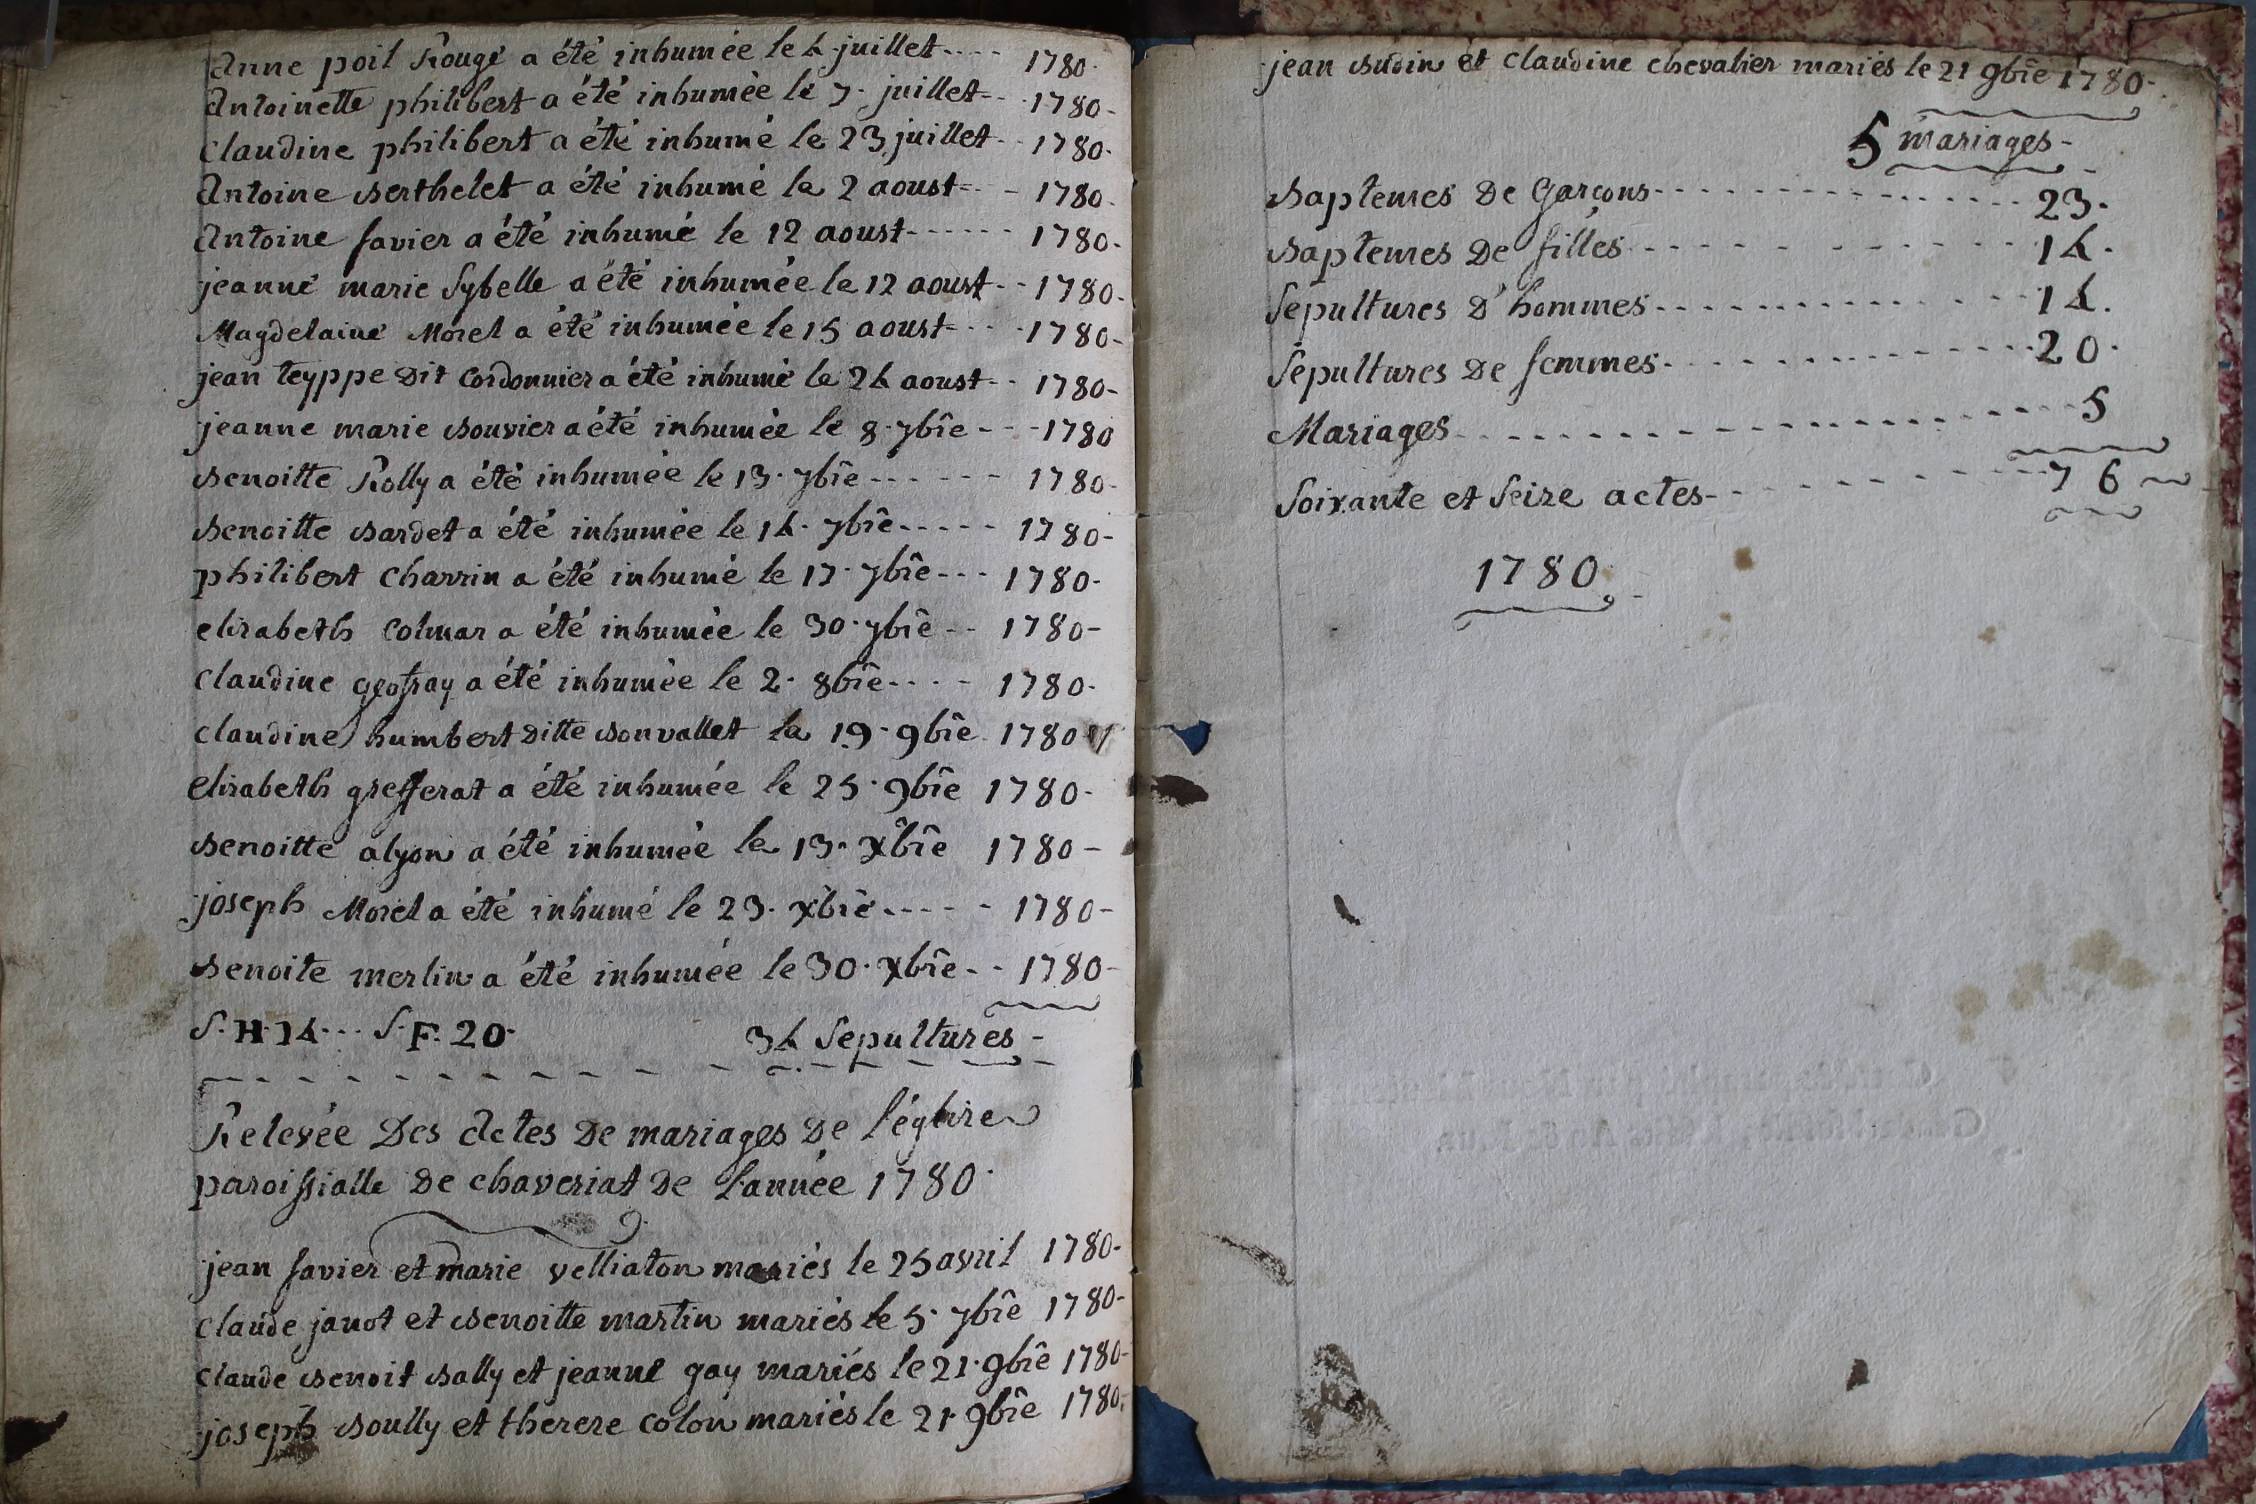 Anne poil Rouge a été inhumée le 4 juillet---- 1780-
Antoinette philibert a été inhumée le 7. juillet-- 1780-
Claudine philibert a été inhumé le 23 juillet-- 1780-
Antoine Berthelet a été inhumé le 2 aoust-- - 1780-
Antoine favier a été inhumé le 12 aoust------ 1780-
jeanne marie Sybelle a été inhumée le 12 aoust-- 1780-
Magdelaine Morel a été inhumée le 15 aoust---- 1780-
jean teyppe Dit Cordonnier a été inhumé le 24 aoust-- 1780-
jeanne marie Bouvier a été inhumée le 8. 7bre-- -1780
Benoitte Rolly a été inhumée le 13. 7bre------ 1780-
Benoitte Bardet a été inhumée le 14. 7bre----- 1780-
philibert Charrin a été inhumé le 17. 7bre--- 1780-
elizabeth Colmar a été inhumée le 30. 7bre-- 1780-
Claudine geofray a été inhumée le 2. 8bre---- 1780-
Claudine humbert Ditte Bonvallet le 19. 9bre 1780
Elizabeth grefferat a été inhumée le 25. 9bre 1780-
Benoitte alyon a été inhumée le 13. Xbre 1780-
joseph Morel a été inhumé le 23. Xbre----- 1780-
Benoite merlin a été inhumée le 30. Xbre-- 1780-
S. H. 14--- S. F. 20. 34 Sepultures-
Relevée Des Actes De mariages De l'églize
paroissialle De chaveriat De l'année 1780.
jean favier et marie velliaton mariés le 25 avril 1780-
Claude janot et Benoitte martin mariés le 5. 7bre 1780-
Claude Benoit Bally et jeanne gay mariés le 21. 9bre 1780-
joseph Boully et thereze Colon mariés le 21. 9bre 1780-
jean Budin et Claudine chevalier mariés le 21 9bre 1780-
5 mariages-
Baptemes De Garçons---------- 23.
Baptemes De filles---------- 14.
Sépultures D'hommes---------- 14.
Sépultures De femmes---------- 20.
Mariages---------- 5
Soixante et Seize actes---------- 76
1780.